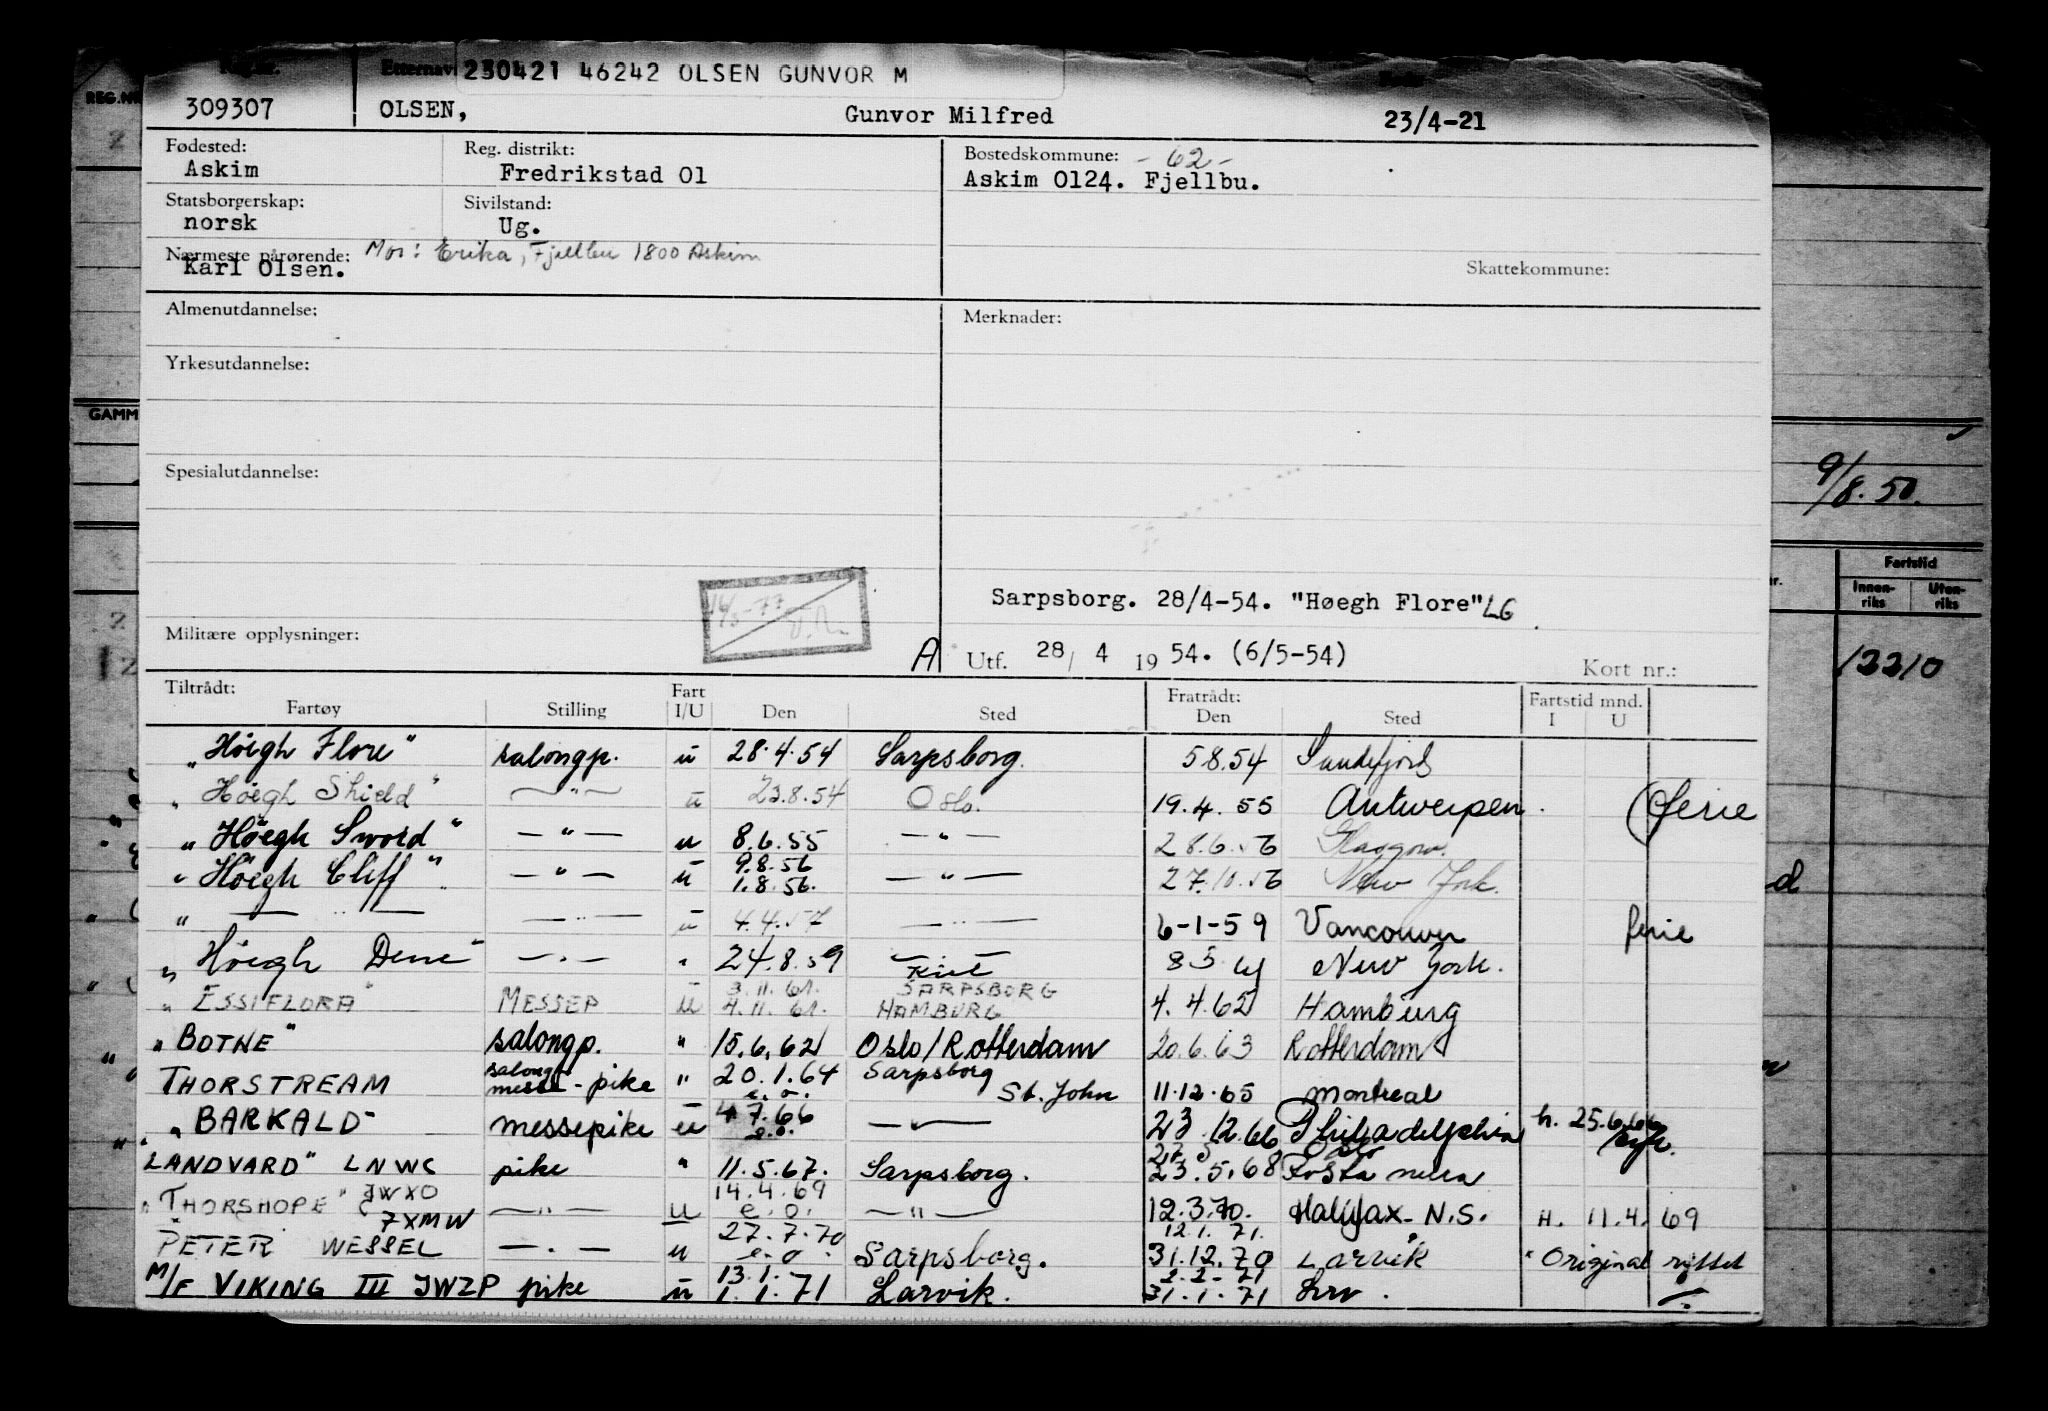 Etternavn 230421 46242 OLSEN GUNVOR M
REG.NR. 309307 OLSEN, Gunvor Milfred 23/4-21
Fødested: Reg. distrikt: Bostedskommune: - 62 -
Askim Fredrikstad 01 Askim 0124. Fjellbu.
Statsborgerskap: Sivilstand:
norsk Ug.
Nærmeste pårørende: Mor: Erika, Fjellbu 1800 Askim
Karl Olsen. Skattekommune:
Almenutdannelse: Merknader:
Yrkesutdannelse:
GAMM
Spesialutdannelse:
9/8.50.
Fartstid
Innen-riks Uten-riks
Sarpsborg. 28/4-54. "Høegh Flore" LG
Militære opplysninger:
A Utf. 28/ 4 19 54. (6/5-54) Kort nr.:
12210
Tiltrådt: Fart Fratrådt: Fartstid mnd.
Fartøy Stilling I/U Den Sted Den Sted I U
"Höegh Flore" salongp. u 28.4.54 Sarpsborg. 5 8.54 Sandefjord
"Höegh Shield" — " — u 23.8.54 Oslo. 19.4.55 Antwerpen. ferie
"Höegh Sword" — " — u 8.6.55 — " — 28.6.56 Glasgow.
9.8.56
"Höegh Cliff" — " — u 1.8.56. — " — 27.10.56 New York.
" — " — — " — u 4.4.57 — " — 6-1-59 Vancouver ferie
"Höegh Dene" — " — " 24.8.59 — " — 8 5 61 New York.
Kiel
3.11.61. SARPSBORG
"ESSIFLORA" MESSEP u 4.11.61. HAMBURG 4.4.62 Hamburg
"BOTNE" salongp. " 15.6.62 Oslo/Rotterdam 20.6.63 Rotterdam
salong
THORSTREAM messe-pike " 20.1.64 Sarpsborg St. John 11.12.65 Montreal
e.o.
"BARKALD" messepike u 4 7.66 — " — 23.12.66 Philadelphia h. 25.6.66
e.o.
27 5 Oslo
"LANDVARD" LNWC pike " 11.5.67. Sarpsborg. 23.5.68
14.4.69
"THORSHOPE" JWXO — " — u e.o. — " — 12.3.70. Halifax N.S. H. 11.4.69
7XMW 27.7.70 12.1.71.
PETER WESSEL — " — u e.o. Sarpsborg. 31.12.70 Larvik "Original rettet
13.1. 2.2-71
M/F VIKING III JWZP pike u 1.1.71 Larvik. 31.1.71 Lrv.